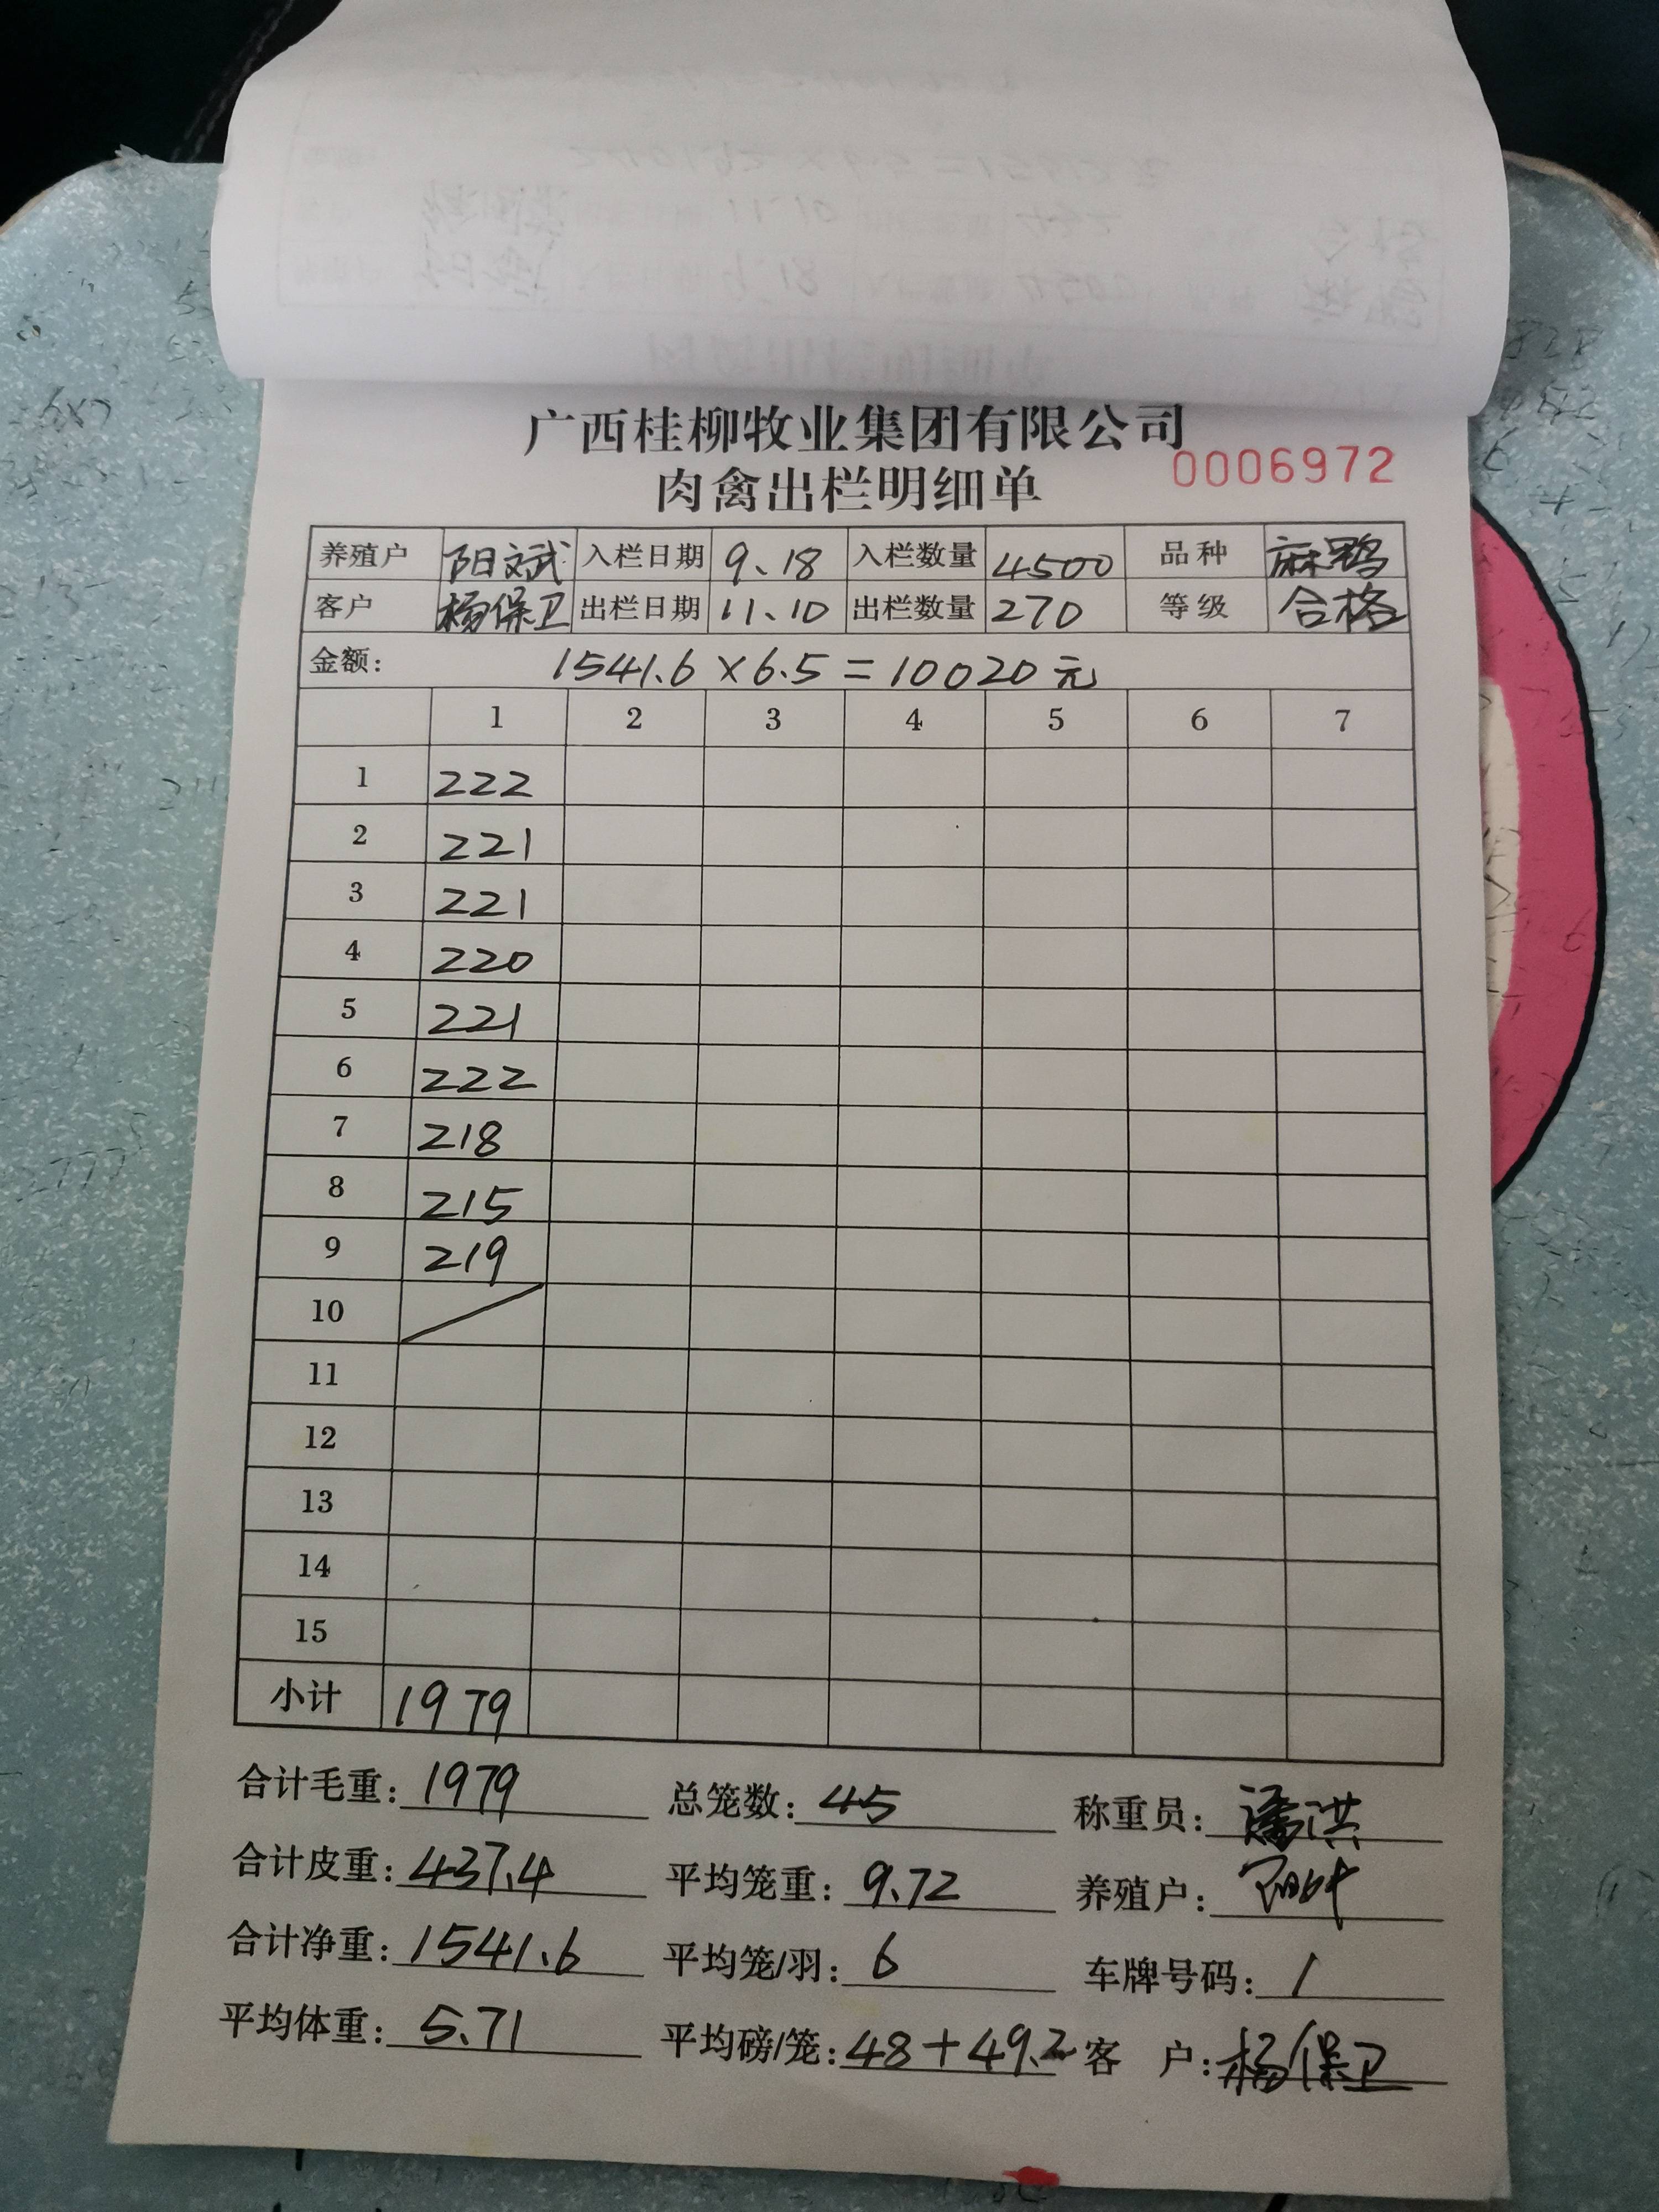 广西桂柳牧业集团有限公司
肉禽出栏明细单 0006972
养殖户 阳文斌 入栏日期 9、18 入栏数量 4500 品种 麻鸭
客户 杨保卫 出栏日期 11、10 出栏数量 270 等级 合格
金额: 1541.6×6.5=10020元
1 2 3 4 5 6 7
1 222
2 221
3 221
4 220
5 221
6 222
7 218
8 215
9 219
10
11
12
13
14
15
小计 1979
合计毛重: 1979 总笼数: 45 称重员: 潘洪
合计皮重: 437.4 平均笼重: 9.72 养殖户:
合计净重: 1541.6 平均笼/羽: 6 车牌号码: /
平均体重: 5.71 平均磅/笼: 48+49.2 客 户: 杨保卫